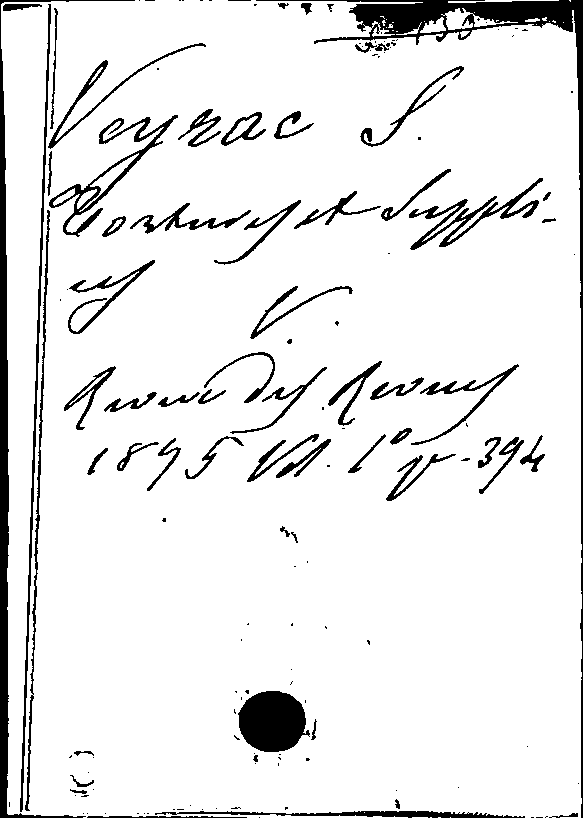 Veyrac S.
Tortures et Suppli-
ces
V.
Revue des Revues
1895 Vol. 1º p. 394